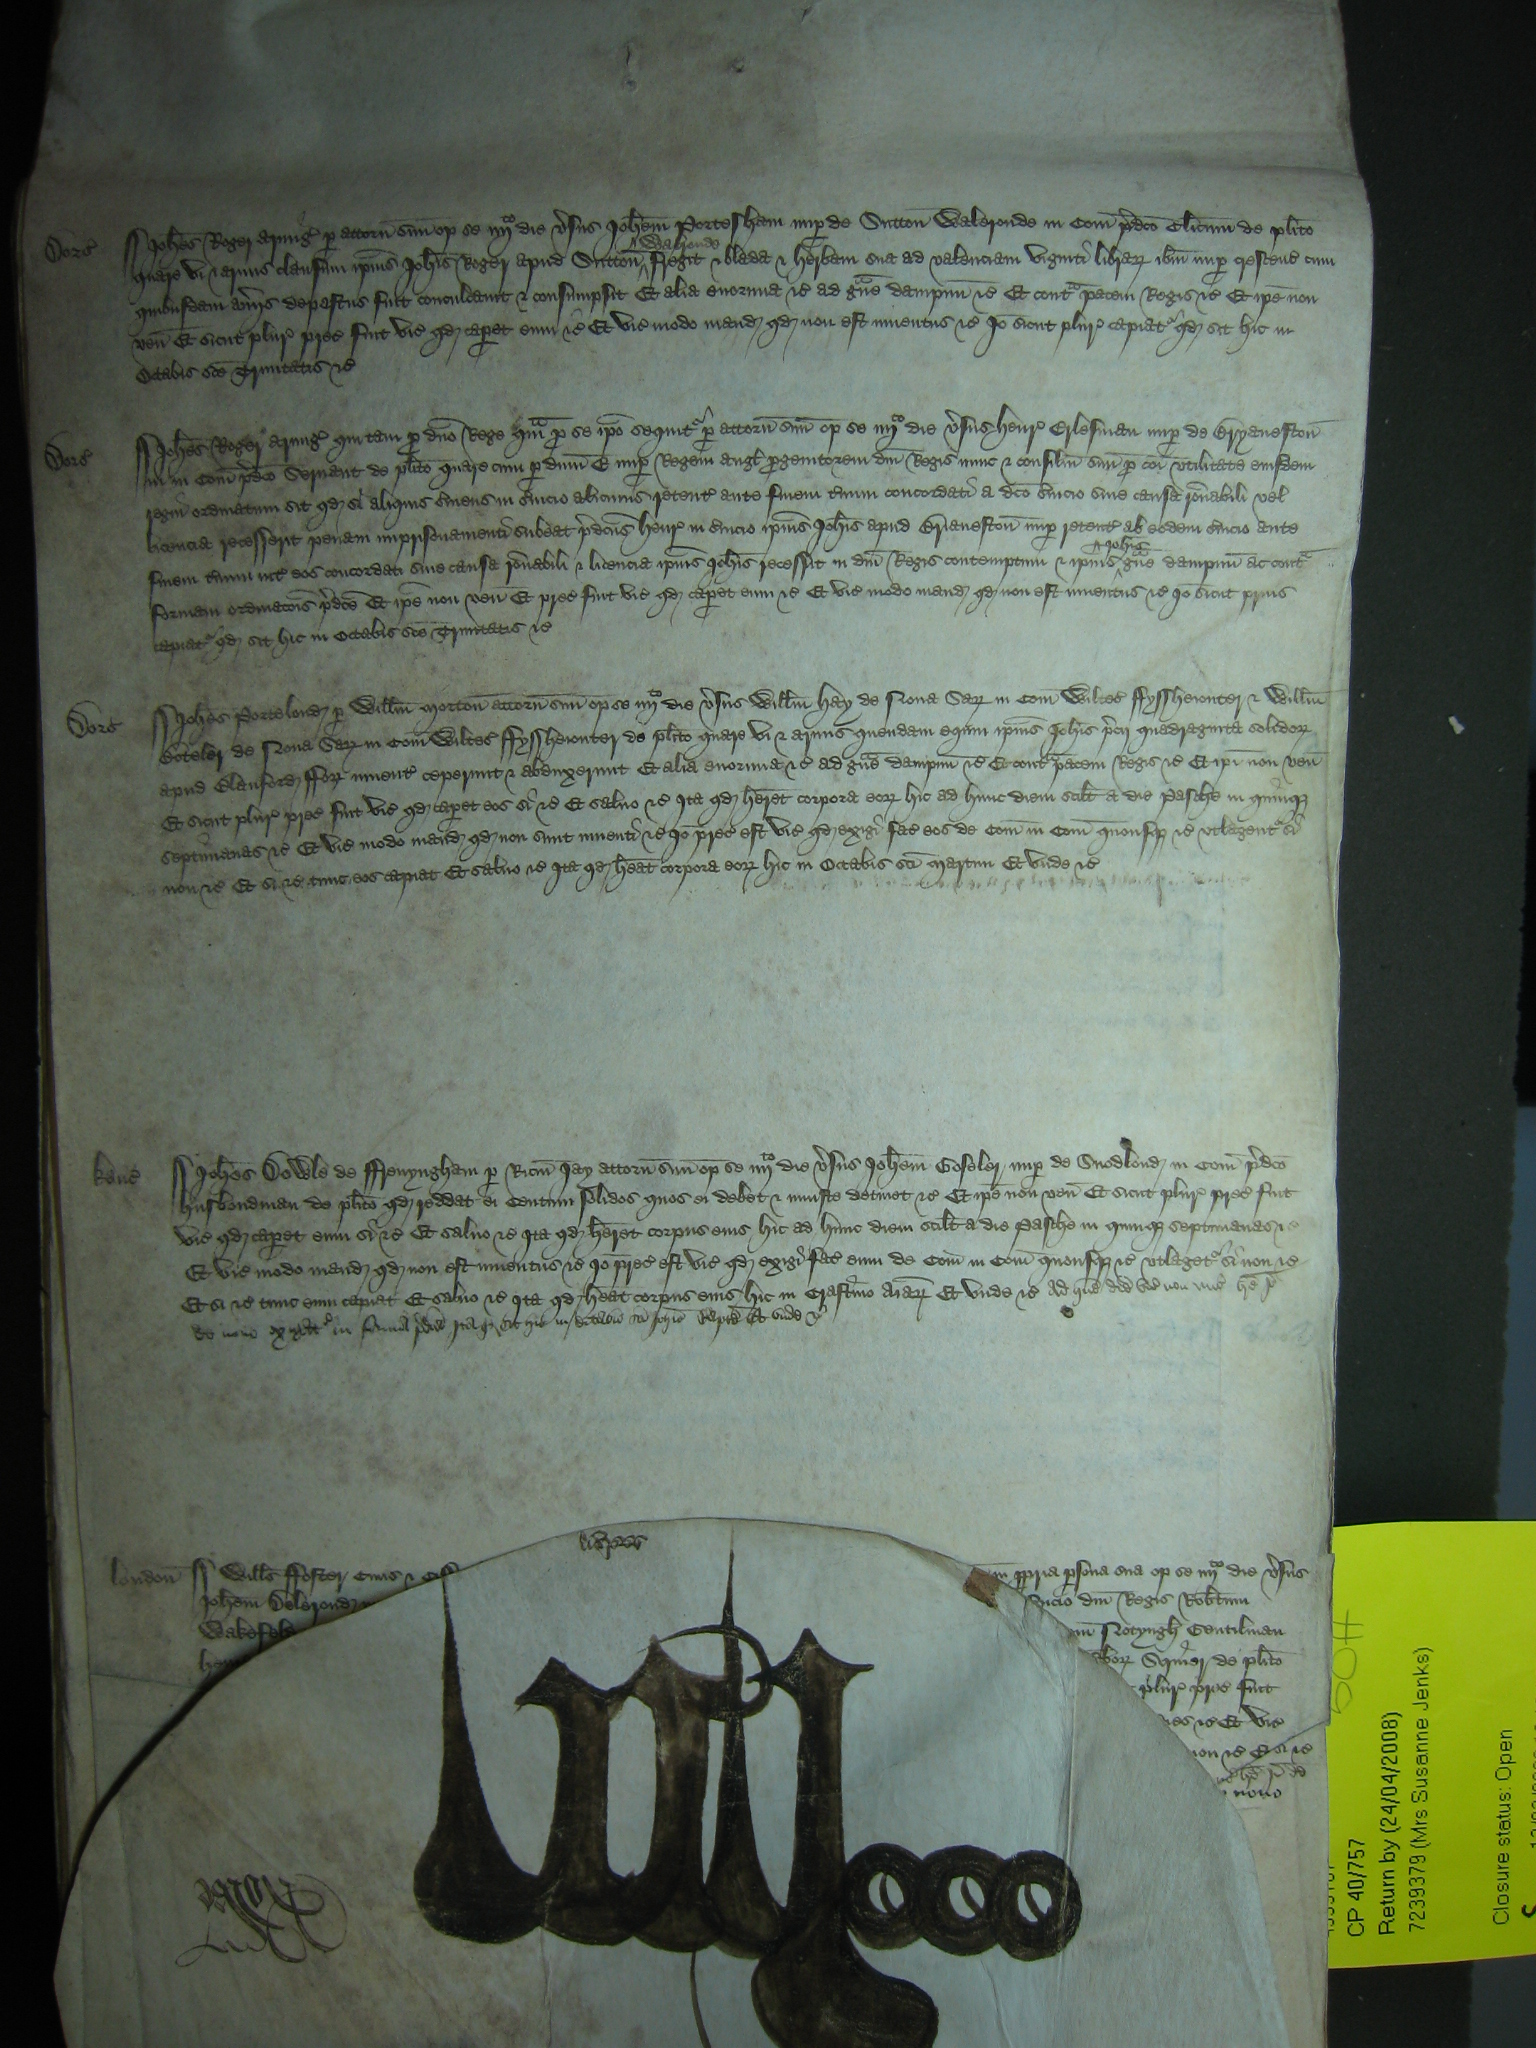 Dors Johes Roger armig p attorn suu op se iiijto die vsus Johem Portesham nup de Sutton Waleronde in Com pdco Clicum de plito
quare vi & armis clausum ipius Johis Roger apud Sutton Walronde fregit & blada & herbam sua ad valenciam viginti librar ibm nup crescent cum
quibusdam aviis depastus fuit conculcavit & consumpsit Et alia enormia &c ad gve dampnu &c Et contra pacem Regis &c Et ipe non
ven Et sicut plur prec fuit vic qd caperet eum &c Et vic modo mand qd non est inventus &c Io sicut plur capiat qd sit hic in
Octabis sce Trinitatis &c
Dors Johes Roger armig qui tam p dno Rege qm p se ipo sequit p attorn suu op se iiijto die vsus Henr Erlesman nup de Bryaneston
in Com pdco Servant de plito quare cum p dnum E nup Regem Angl pgenitorem dni Regis nunc & consiliu suu p coi utilitate eiusdem
regni ordinatum sit qd si aliquis serviens in svicio alicuius retent ante finem tmini concordati a dco svicio sine causa ronabili vel
licencia recesserit penam imprisonamenti subeat pdcus Henr in svicio ipius Johis apud Brianeston nup retent ab eodem svicio ante
finem tmini int eos concordati sine causa ronabili & licencia ipius Johis recessit in dni Regis contemptum & ipius Johis gve dampnu ac contra
formam ordinacois pdce Et ipe non ven Et prec fuit vic qd caperet eum &c Et vic modo mand qd non est inventus &c Io sicut prius
capiat qd sit hic in Octabis sce Trinitatis &c
Dors Johes Portelond p Willm Morton attorn suu op se iiijto die vsus Willm Hay de Nova Sar in Com Wiltes Fysshemonter & Willm
Boteler de Nova Sar in Com Wiltes Fysshemonter de plito quare vi & armis quendam equm ipius Johis pcii quadraginta solidor
apud Blanford Forz invent ceperunt & abduxerunt Et alia enormia &c ad gve dampnu &c Et contra pacem Regis &c Et ipi non ven
Et sicut plur prec fuit vic qd caperet eos si &c Et salvo &c Ita qd heret corpora eor hic ad hunc diem scilt a die Pasche in quinq
septimanas &c Et vic modo mand qd non sunt inventi &c Io prec est vic qd exigi fac eos de Com in Com quousq &c utlagent si
non &c Et si &c tunc eos capiat Et salvo &c Ita qd heat corpora eor hic in Octabis sci Martini Et unde &c
Kanc Johes Dowle de Frenyngham p Ricm Jay attorn suu op se iiijto die vsus Johem Goseler nup de Snodlond in Com pdco
Husbondman de plito qd reddat ei Centum solidos quos ei debet & iniuste detinet &c Et ipe non ven Et sicut plur prec fuit
vic qd caperet eum si &c Et salvo &c Ita qd heret corpus eius hic ad hunc diem scilt a die Pasche in quinq septimanas &c
Et vic modo mand qd non est inventus &c Io prec est vic qd exigi fac eum de Com in Com quousq &c utlaget si non &c
Et si &c tunc eum capiat Et salvo &c Ita qd heat corpus eius hic in Crastino Aiar Et unde &c Ad que diem vic non mis bre Io
de novo exigat in forma pdca Ita q sit hic in Octabis sci Johis Bapte Et unde &c
London Wills Foster Civis & Cis
in ppria psona sua op se iiijto die vsus
Johem
svicio dni Regis Robtum
Wakefeld
Notyngh Gentilman
Squier de plito
plur prec fuit
&c Et vic
non &c Et si &c
novo
CP 40/757
Return by (24/04/2008)
7239379 (Mrs Susanne Jenks)
Closure status: Open